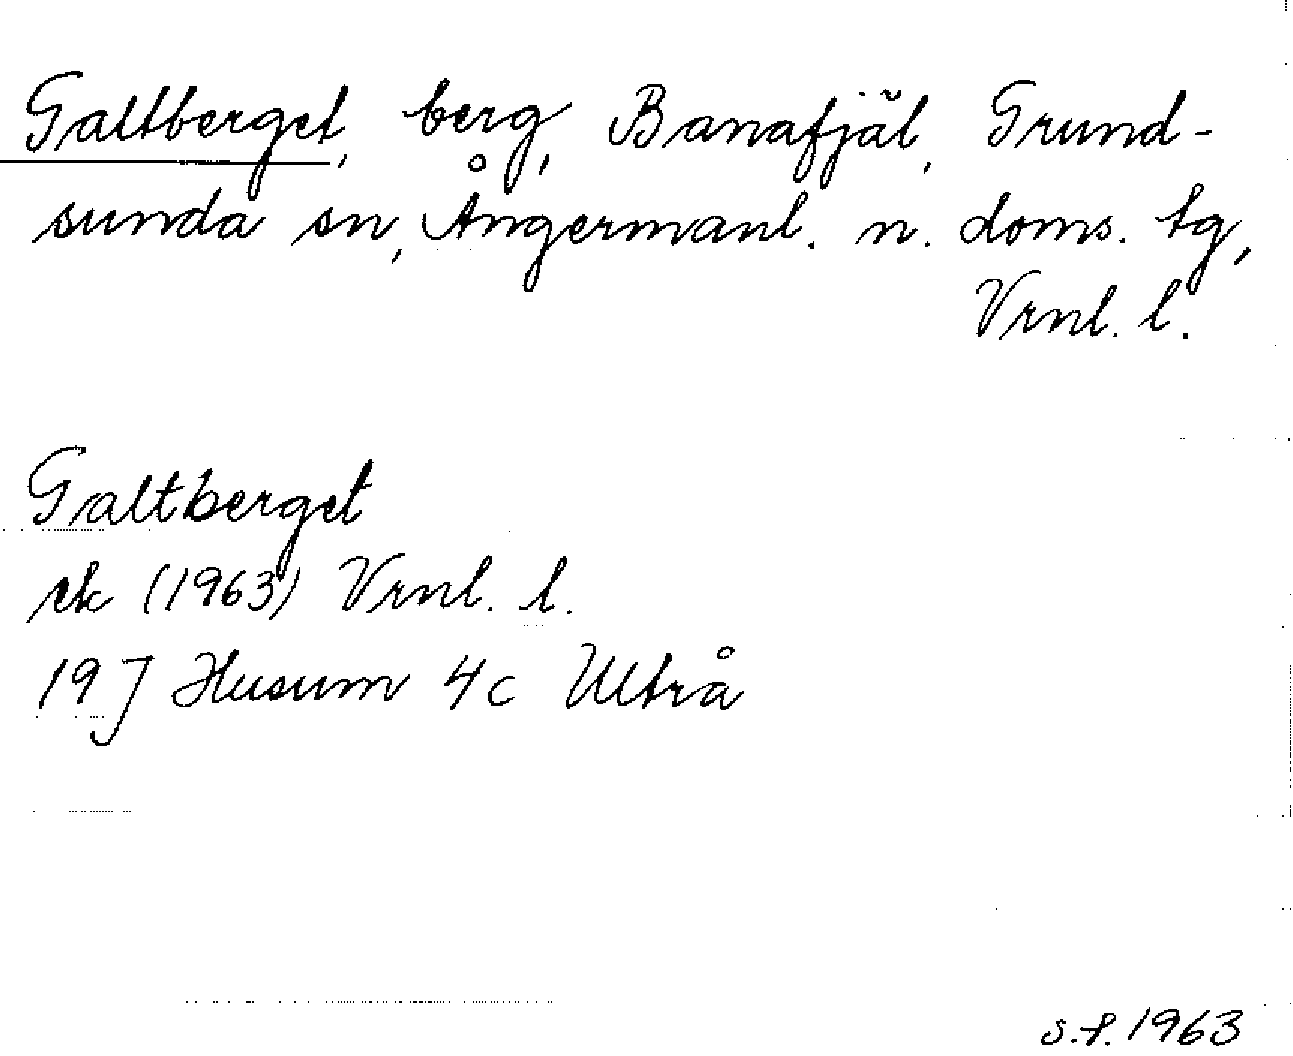 Galtberget, berg, Banafjäl, Grund-
sunda sn, Ångermanl. n. doms. tg,
Vrnl. l.
Galtberget
ek (1963) Vrnl. l.
19 J Husum 4c Ultrå
s.f. 1963